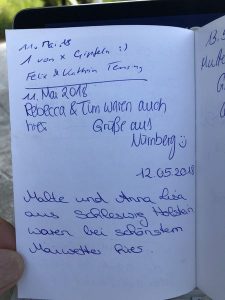 11. Mai 18
1 von x Gipfeln :)
Felix & Kathrin
11. Mai 2018
Rebecca & Tim waren auch
hier Grüße aus
Nürnberg :)
12.05.2018
Malte und Anna Lisa
aus Schleswig Holstein
waren bei schönstem
Maiwetter hier.
13.5